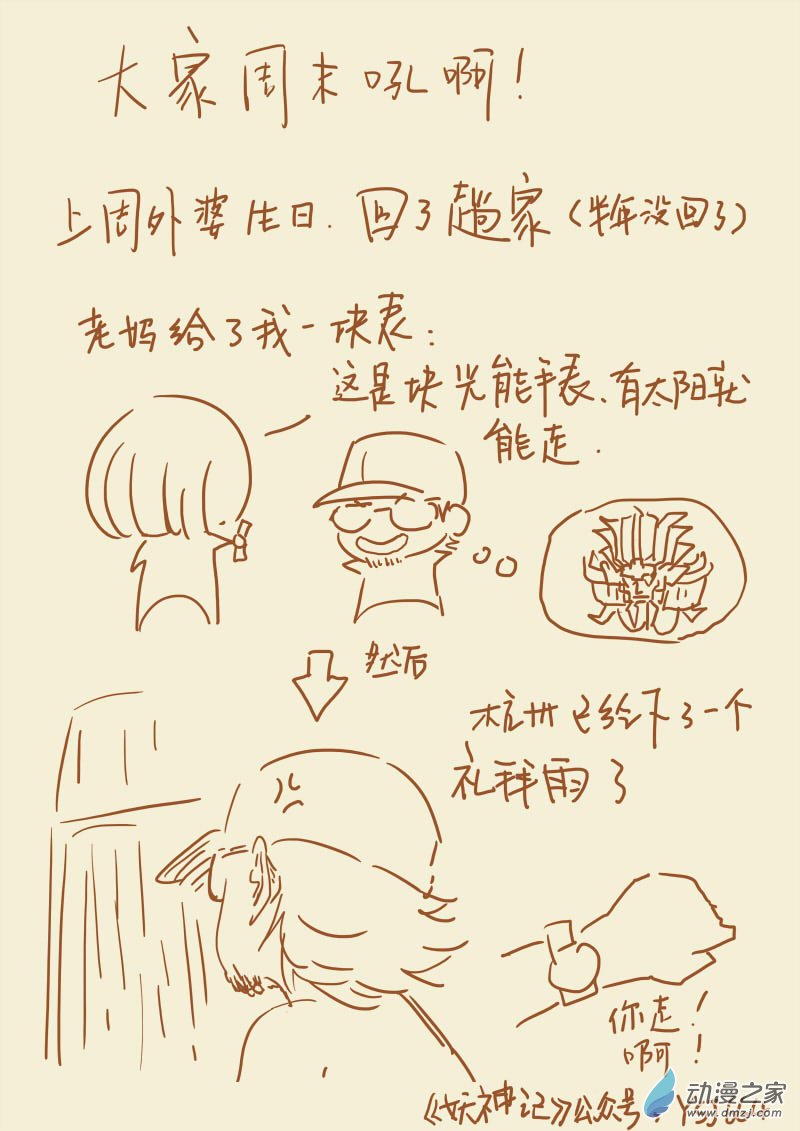 大家周末吼啊！
上周外婆生日.回了趟家（半年没回了）
老妈给了我一块表：
这是块光能手表、有太阳就
能走.
然后
杭州已经下了一个
礼拜雨了
你走！
啊！
《妖神记》公众号：
动漫之家
www.dmzj.com